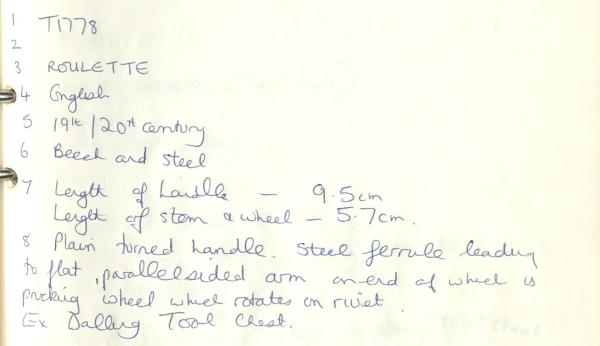 1 T1778
2
3 ROULETTE
4 English
5 19th/20th century
6 Beech and steel
7 Length of handle – 9.5cm
Length of stem & wheel – 5.7cm.
8 Plain turned handle. Steel ferrule leading
to flat, parallel sided arm on end of wheel is
pricking wheel wheel rotates on rivet
Ex Dalling Tool Chest.